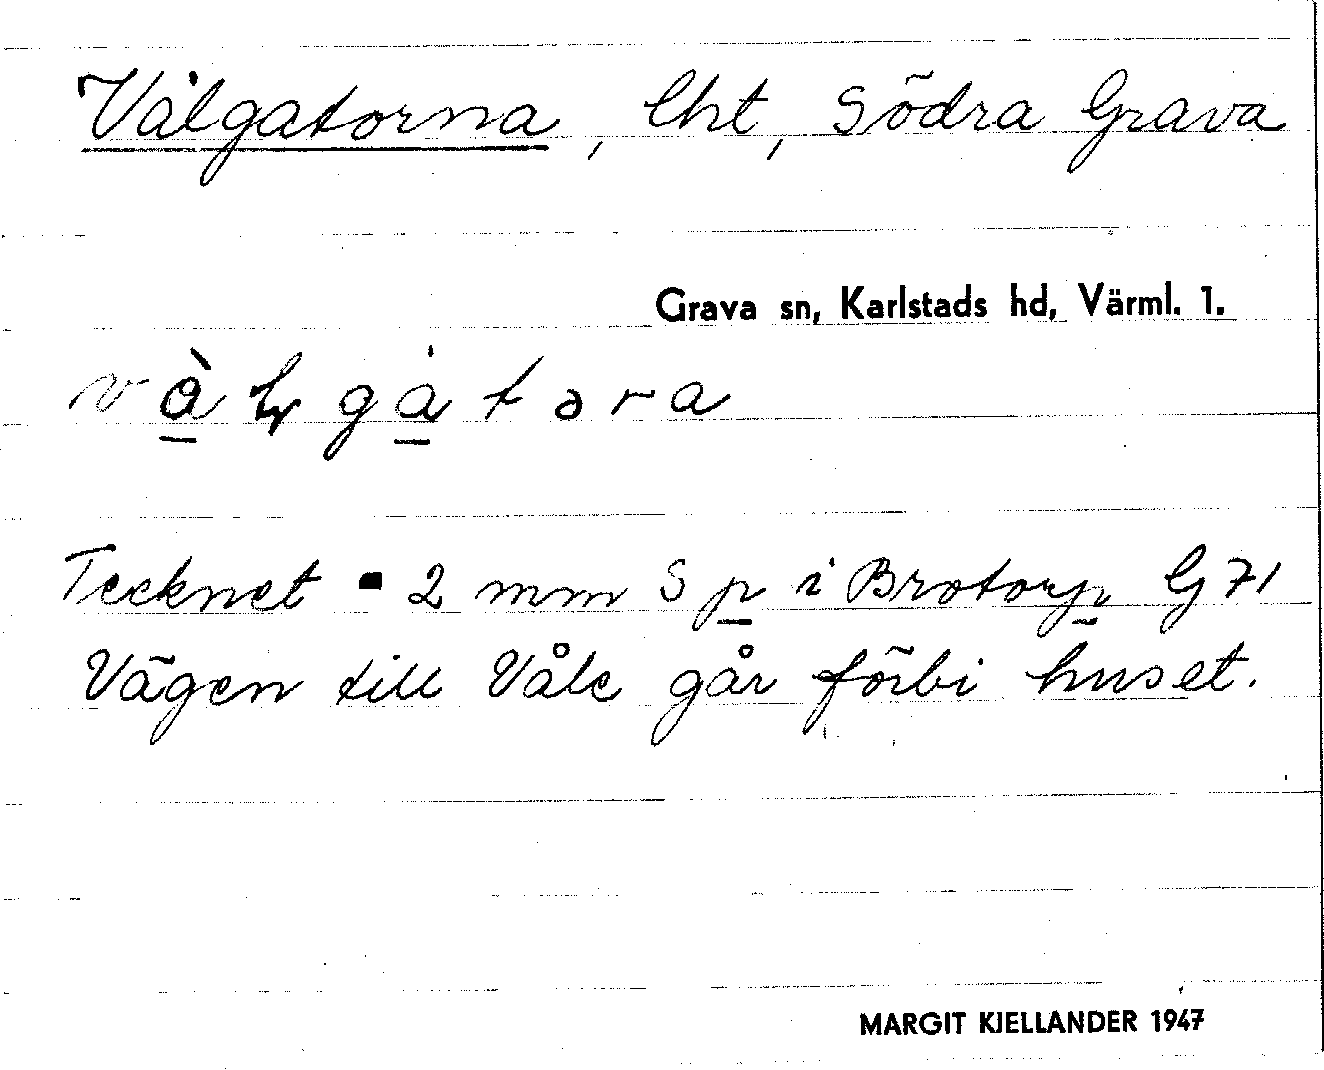 Vålgatorna, lht, Södra Grava
Grava sn, Karlstads hd, Värml. 1.
Tecknet ▪ 2 mm S p i Brotorp Gj 71
Vägen till Våle går förbi huset.
MARGIT KJELLANDER 1947